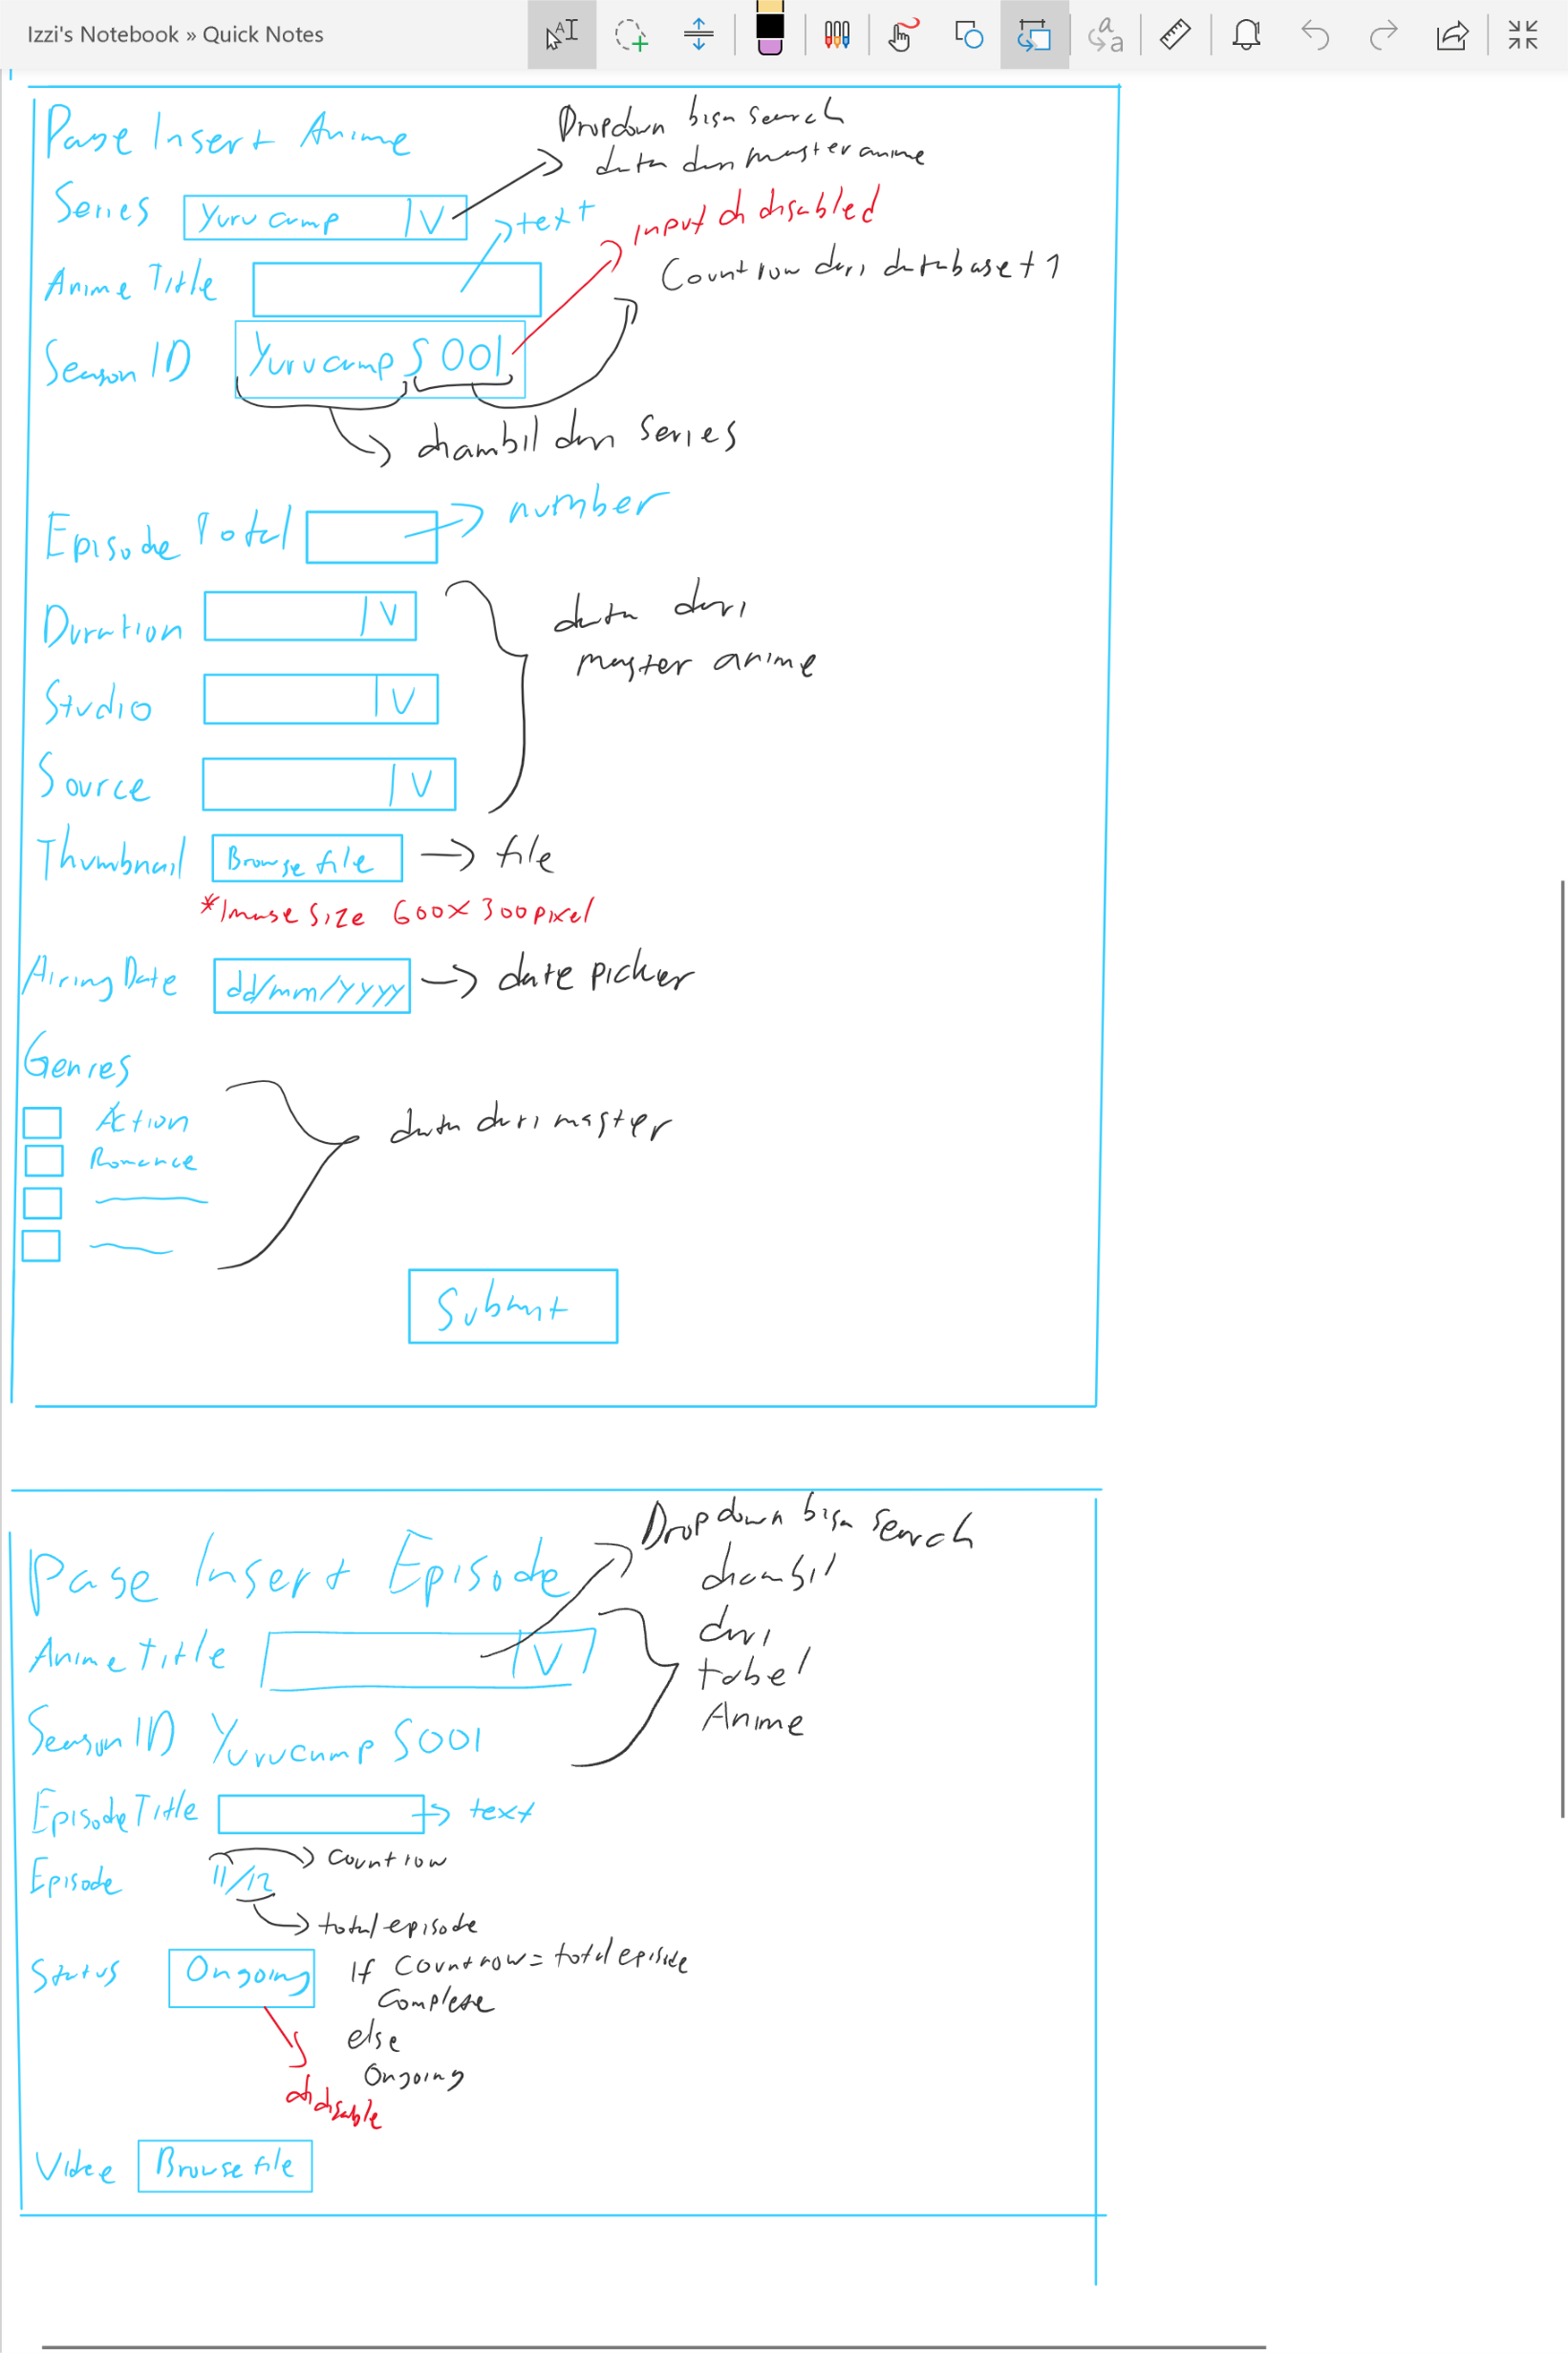 Izzi's Notebook » Quick Notes
Page Insert Anime
Dropdown bisa search
data dari master anime
Series Yuru camp V
text
input di disabled
Anime Title
Count row dari database + 1
Season ID Yurucamp S001
diambil dari series
Episode Total
number
Duration V
data dari
master anime
Studio V
Source V
Thumbnail Browse file
file
*Image Size 600x300 pixel
Airing Date dd/mm/yyyy
date picker
Genres
Action
data dari master
Romance
Submit
Page Insert Episode
Dropdown bisa search
diambil
dari
tabel
Anime
Anime Title V
Season ID Yurucamp S001
Episode Title
text
Episode 11/12
Count row
total episode
Status Ongoing
If Count row = total episode
Complete
else
Ongoing
di disable
Video Browse file